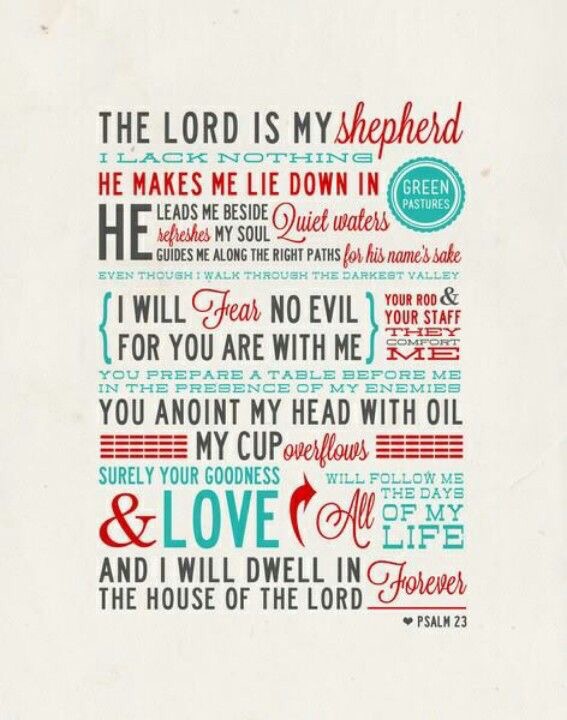 THE LORD IS MY shepherd
I LACK NOTHING
HE MAKES ME LIE DOWN IN
GREEN
PASTURES
HE LEADS ME BESIDE Quiet waters
refreshes MY SOUL
GUIDES ME ALONG THE RIGHT PATHS for his name's sake
EVEN THOUGH I WALK THROUGH THE DARKEST VALLEY
{ I WILL Fear NO EVIL
FOR YOU ARE WITH ME }
YOUR ROD &
YOUR STAFF
THEY
COMFORT
ME
YOU PREPARE A TABLE BEFORE ME
IN THE PRESENCE OF MY ENEMIES
YOU ANOINT MY HEAD WITH OIL
MY CUP overflows
SURELY YOUR GOODNESS
& LOVE
WILL FOLLOW ME
All THE DAYS
OF MY
LIFE
AND I WILL DWELL IN
THE HOUSE OF THE LORD Forever
❤ PSALM 23